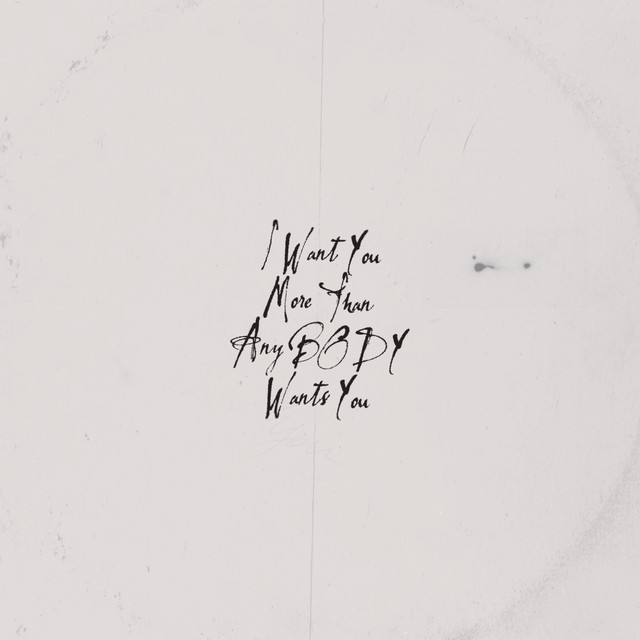 I Want You
More Than
AnyBODY
Wants You